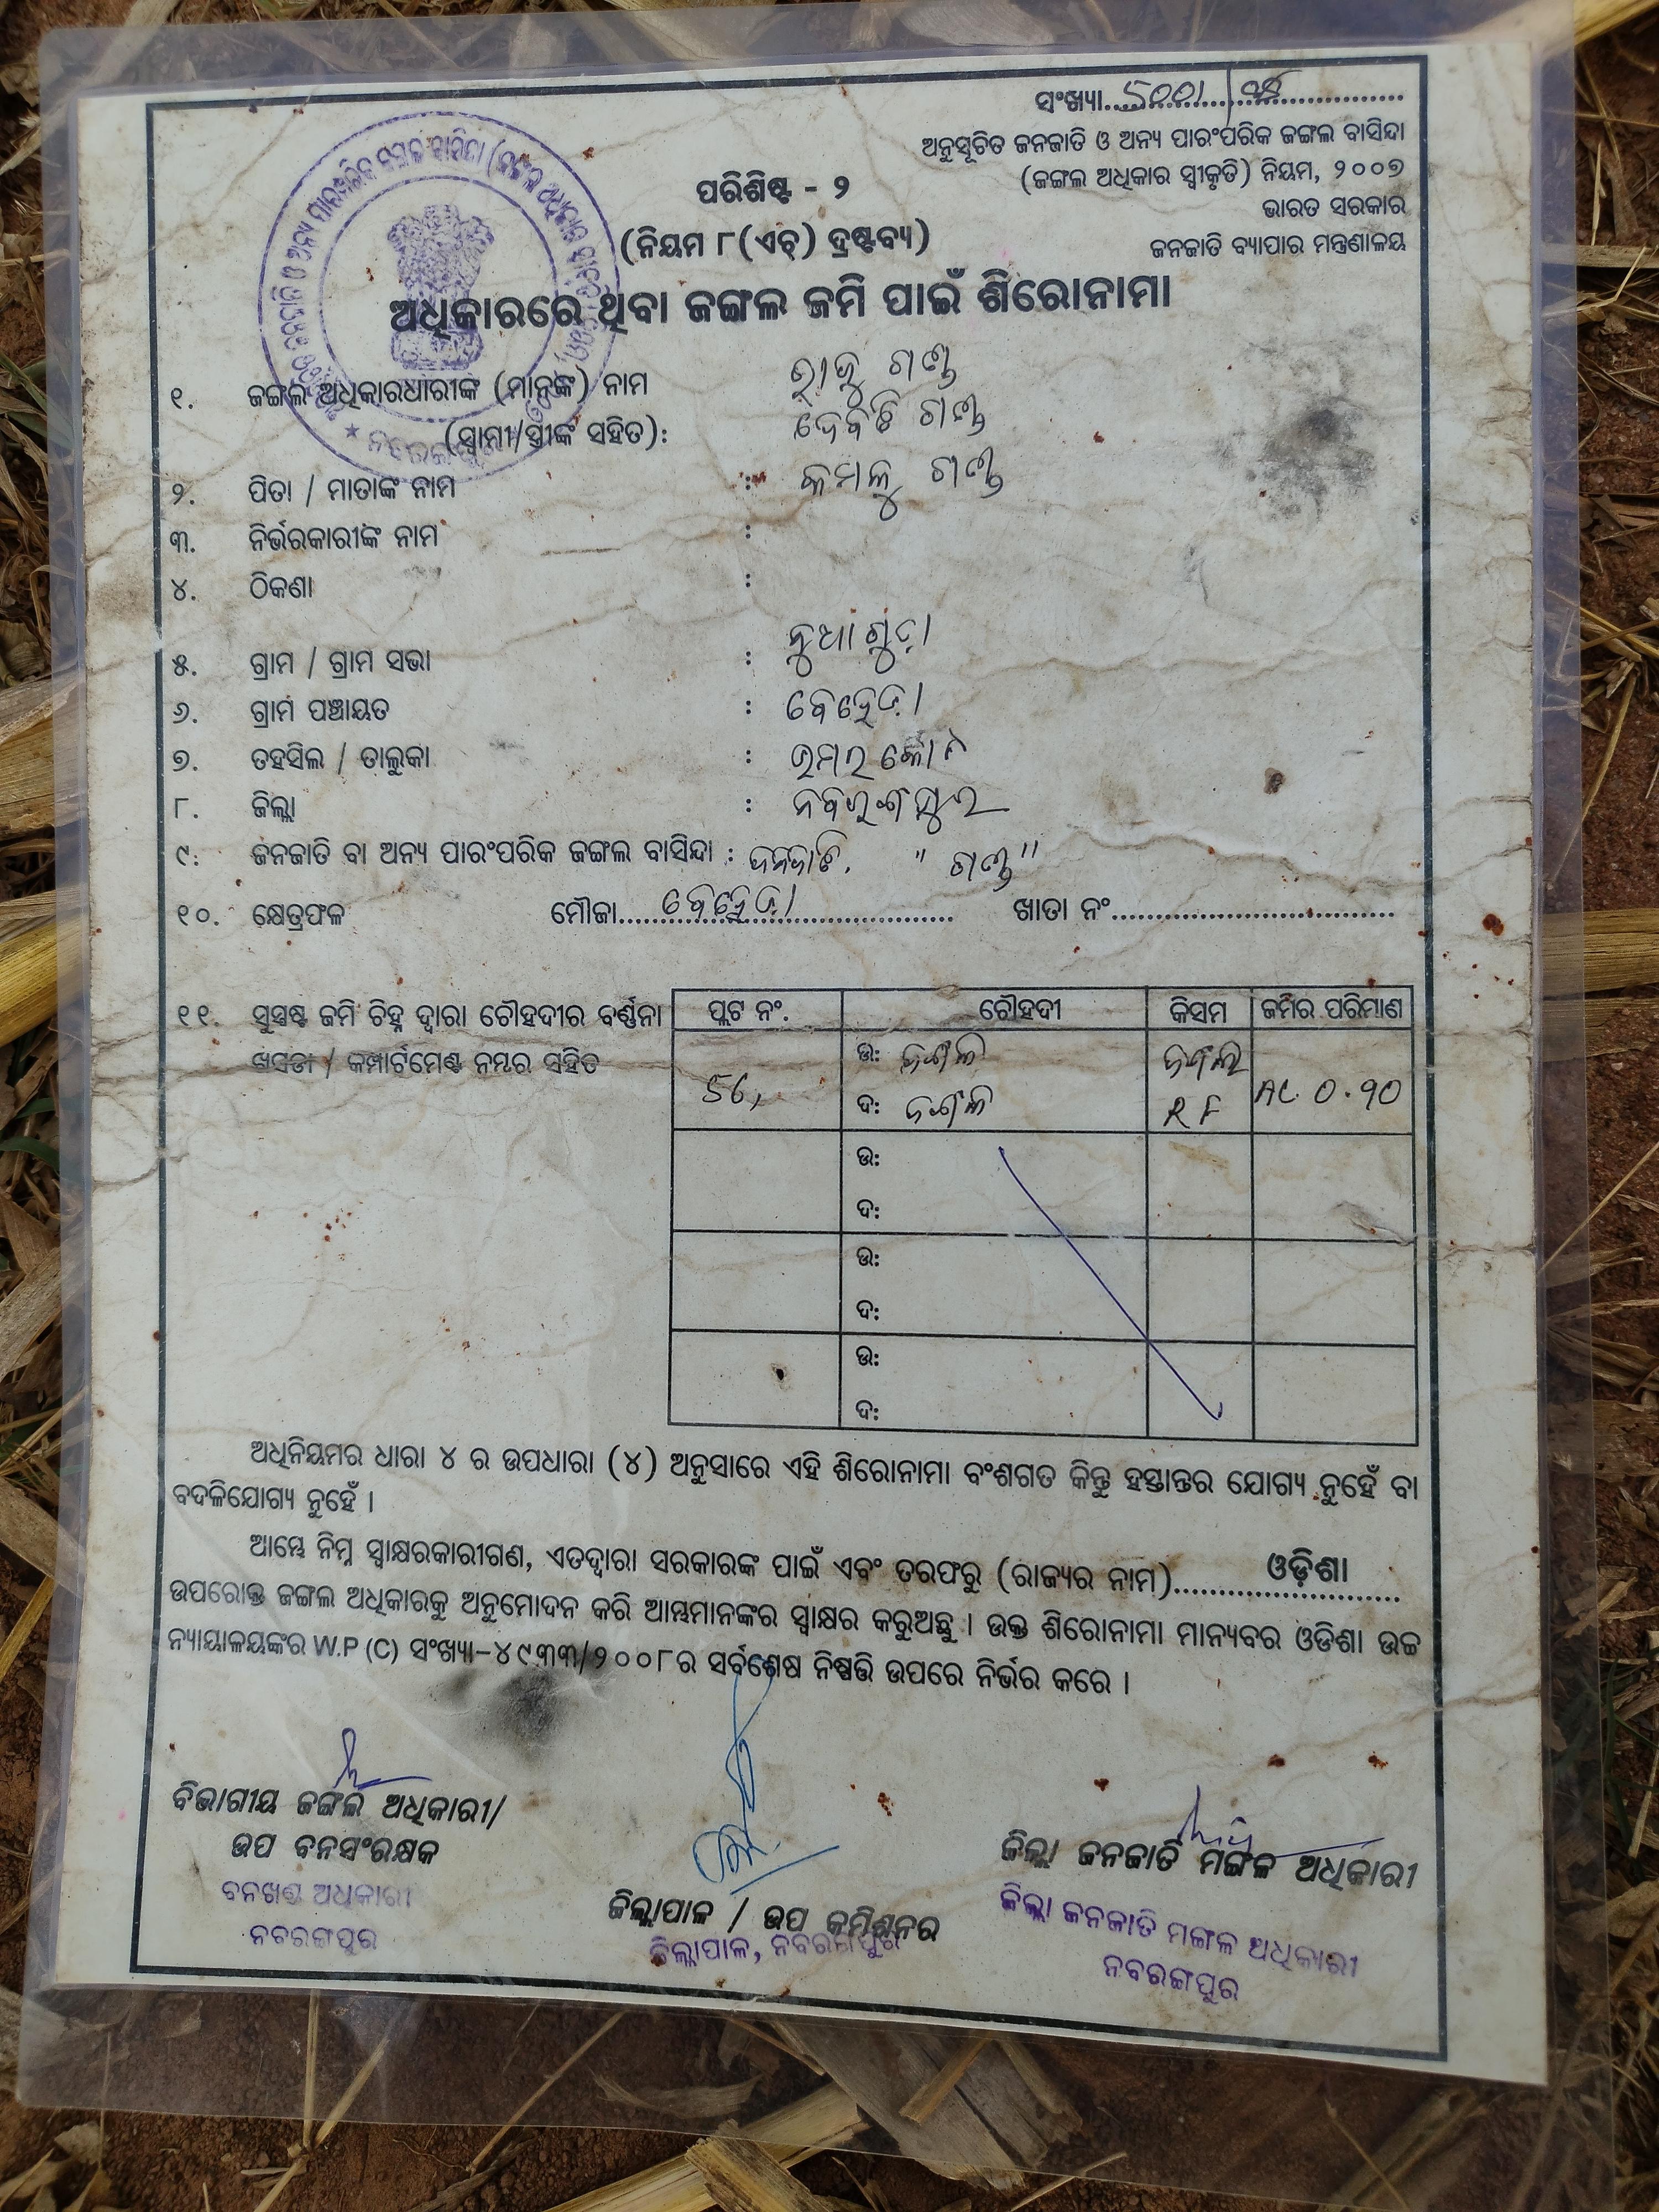 ସଂଖ୍ୟା
ଅନୁସୂଚିତ ଜନଜାତି ଓ ଅନ୍ୟ ପାରଂପରିକ ଜଙ୍ଗଲ ବାସିନ୍ଦା
(ଜଙ୍ଗଲ ଅଧିକାର ସ୍ୱୀକୃତି) ନିୟମ, ୨୦୦୭
ଭାରତ ସରକାର
ଜନଜାତି ବ୍ୟାପାର ମନ୍ତ୍ରଣାଳୟ
ପରିଶିଷ୍ଟ - ୨
(ନିୟମ ୮(ଏଚ୍) ଦ୍ରଷ୍ଟବ୍ୟ)
ଅଧିକାରରେ ଥିବା ଜଙ୍ଗଲ ଜମି ପାଇଁ ଶିରୋନାମା
୧. ଜଙ୍ଗଲ ଅଧିକାରଧାରୀଙ୍କ (ମାନଙ୍କ) ନାମ ରାଜୁ ଗଣ୍ଡ
(ସ୍ୱାମୀ/ସ୍ତ୍ରୀଙ୍କ ସହିତ): ଗଣ୍ଡ
୨. ପିତା / ମାତାଙ୍କ ନାମ : କମଳୁ ଗଣ୍ଡ
୩. ନିର୍ଭରକାରୀଙ୍କ ନାମ :
୪. ଠିକଣା :
୫. ଗ୍ରାମ / ଗ୍ରାମ ସଭା : ନୁଆଗୁଡ଼ା
୬. ଗ୍ରାମ ପଞ୍ଚାୟତ : ବେହେଡ଼ା
୭. ତହସିଲ / ତାଲୁକା : ଉମରକୋଟ
୮. ଜିଲ୍ଲା : ନବରଂଗପୁର
୯: ଜନଜାତି ବା ଅନ୍ୟ ପାରଂପରିକ ଜଙ୍ଗଲ ବାସିନ୍ଦା : ଜନଜାତି. " ଗଣ୍ଡ"
୧୦. କ୍ଷେତ୍ରଫଳ ମୌଜା ବେହେଡ଼ା ଖାତା ନଂ
୧୧. ସୁସ୍ପଷ୍ଟ ଜମି ଚିହ୍ନ ଦ୍ୱାରା ଚୌହଦୀର ବର୍ଣ୍ଣନା
ଖସଡା / କମ୍ପାର୍ଟମେଣ୍ଟ ନମ୍ବର ସହିତ
ପ୍ଲଟ ନଂ. ଚୌହଦୀ କିସମ ଜମିର ପରିମାଣ
ଉ: ଜଂଗଲ ଜଂଗଲ
56, ଦ: ଜଂଗଲ RF AC 0.90
ଉ:
ଦ:
ଉ:
ଦ:
ଉ:
ଦ:
ଅଧିନିୟମର ଧାରା ୪ ର ଉପଧାରା (୪) ଅନୁସାରେ ଏହି ଶିରୋନାମା ବଂଶଗତ କିନ୍ତୁ ହସ୍ତାନ୍ତର ଯୋଗ୍ୟ ନୁହେଁ ବା
ବଦଳିଯୋଗ୍ୟ ନୁହେଁ ।
ଆମ୍ଭେ ନିମ୍ନ ସ୍ୱାକ୍ଷରକାରୀଗଣ, ଏତଦ୍ୱାରା ସରକାରଙ୍କ ପାଇଁ ଏବଂ ତରଫରୁ (ରାଜ୍ୟର ନାମ) ଓଡ଼ିଶା
ଉପରୋକ୍ତ ଜଙ୍ଗଲ ଅଧିକାରକୁ ଅନୁମୋଦନ କରି ଆମ୍ଭମାନଙ୍କର ସ୍ୱାକ୍ଷର କରୁଅଛୁ । ଉକ୍ତ ଶିରୋନାମା ମାନ୍ୟବର ଓଡିଶା ଉଚ୍ଚ
ନ୍ୟାୟାଳୟଙ୍କର W.P (C) ସଂଖ୍ୟା-୪୯୩୩/୨୦୦୮ର ସର୍ବଶେଷ ନିଷ୍ପତ୍ତି ଉପରେ ନିର୍ଭର କରେ ।
ବିଭାଗୀୟ ଜଙ୍ଗଲ ଅଧିକାରୀ/
ଉପ ବନସଂରକ୍ଷକ
ବନଖଣ୍ଡ ଅଧିକାରୀ
ନବରଙ୍ଗପୁର
ଜିଲ୍ଲାପାଳ / ଉପ କମିଶନର
ଜିଲ୍ଲାପାଳ, ନବରଙ୍ଗପୁର
ଜିଲ୍ଲା ଜନଜାତି ମଙ୍ଗଳ ଅଧିକାରୀ
ଜିଲ୍ଲା ଜନଜାତି ମଙ୍ଗଳ ଅଧିକାରୀ
ନବରଙ୍ଗପୁର